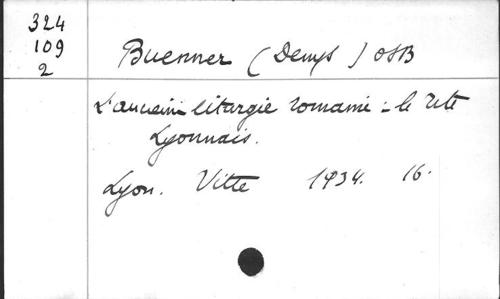 324
109
2
Buenner (Denys) OSB
L'ancienne liturgie romaine : le rite
Lyonnais.
Lyon. Vitte 1934. 16.